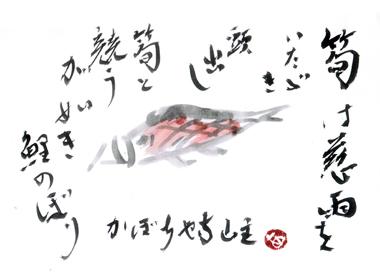 筍は慈雨を
いただき
頭出し
筍と
競う
がいめき
鯉のぼり
かぼちゃ寺山主